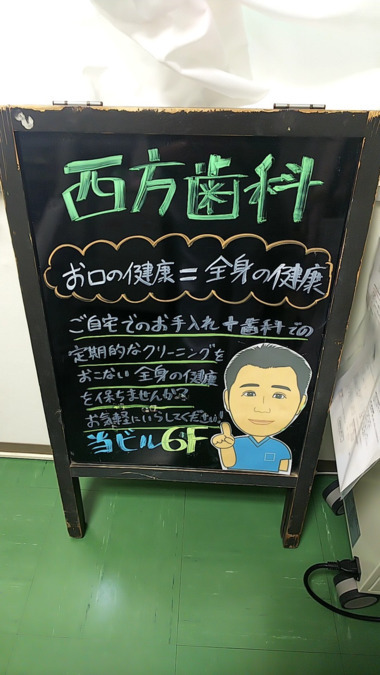 西方歯科
お口の健康=全身の健康
ご自宅でのお手入れ+歯科での
定期的なクリーニングを
おこない全身の健康
を保ちませんか?
お気軽にいらしてください!
当ビル6F